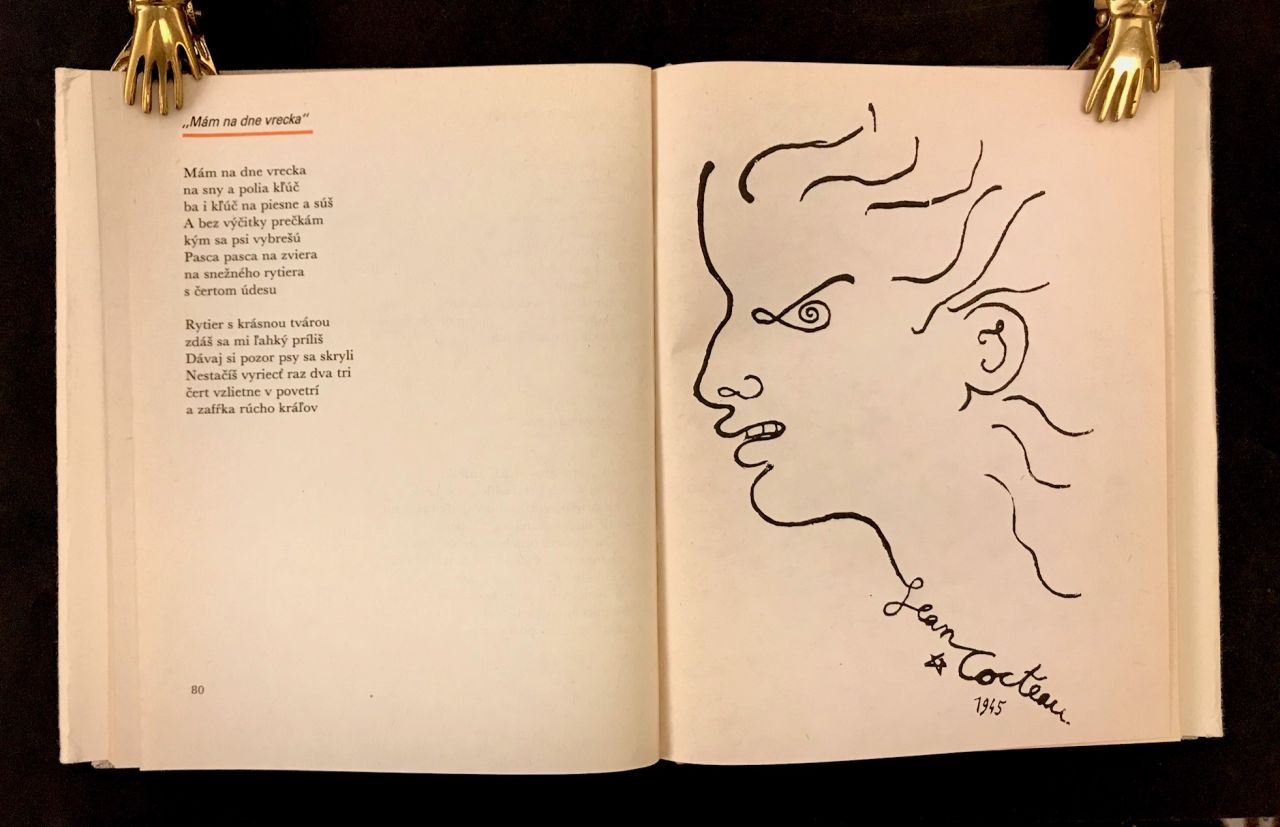 „Mám na dne vrecka“
Mám na dne vrecka
na sny a polia kľúč
ba i kľúč na piesne a súš
A bez výčitky prečkám
kým sa psi vybrešú
Pasca pasca na zviera
na snežného rytiera
s čertom údesu
Rytier s krásnou tvárou
zdáš sa mi ľahký príliš
Dávaj si pozor psy sa skryli
Nestačíš vyriecť raz dva tri
čert vzlietne v povetrí
a zafŕka rúcho kráľov
80
Jean
Cocteau
1945